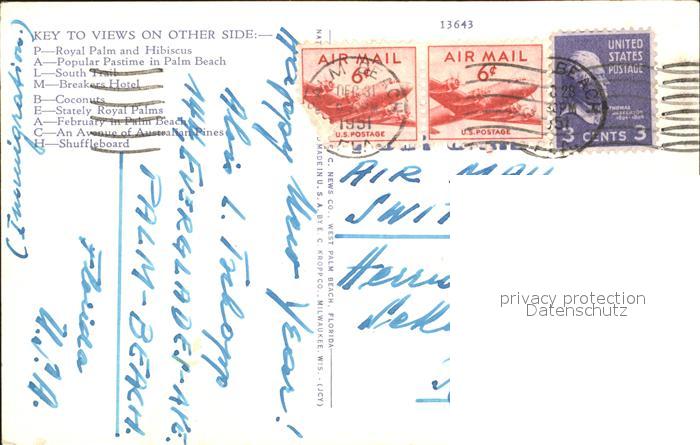 13643
KEY TO VIEWS ON OTHER SIDE:—
P—Royal Palm and Hibiscus
A—Popular Pastime in Palm Beach
L—South Trail
M—Breakers Hotel
B—Coconuts
E—Stately Royal Palms
A—February in Palm Beach
C—An Avenue of Australian Pines
H—Shuffleboard
AIR MAIL
6¢
U.S. POSTAGE
AIR MAIL
6¢
U.S. POSTAGE
UNITED
STATES
POSTAGE
THOMAS
JEFFERSON
3 CENTS 3
DEC 31
1951
Happy New Year!
Alois L.
144 EVERGLADES-AVE.
PALM-BEACH.
Florida
U.S.A.
(Immigration.)
NEWS CO., WEST PALM BEACH, FLORIDA
MADE IN U.S.A. BY E. C. KROPP CO., MILWAUKEE, WIS. (JCY)
AIR MAIL
SWIT
Herrn
privacy protection
Datenschutz